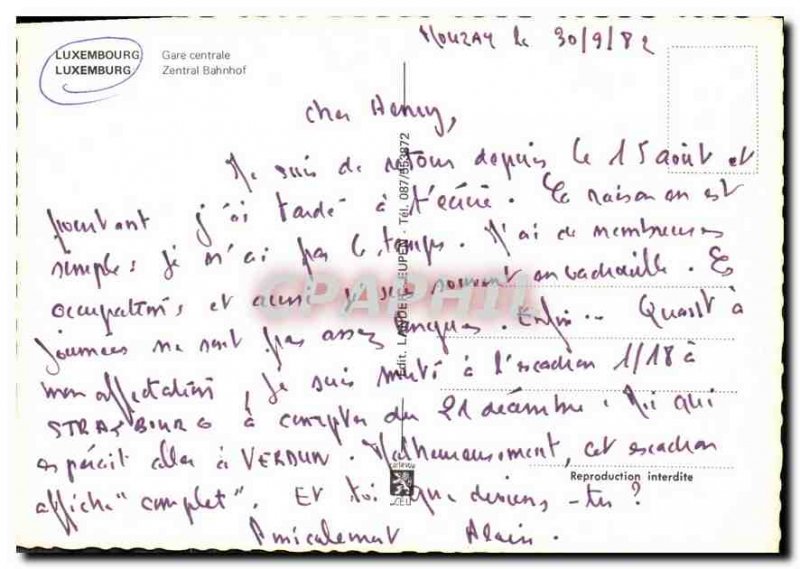 LUXEMBOURG Gare centrale
LUXEMBURG Zentral Bahnhof
Mouzay le 30/9/82
Cher Henry,
Je suis de retour depuis le 15 août et
pourtant j'ai tardé à t'écrire. La raison en est
simple: je n'ai pas le temps. J'ai de nombreuses
occupations et aussi je suis souvent en vadrouille. Les
journées ne sont pas assez longues. Enfin... Quant à
mon affectation, je suis muté à l'escadron 1/18 à
STRASBOURG à compter du 21 décembre. Moi qui
espérait aller à VERDUN. Malheureusement, cet escadron
affiche "complet". Et toi que deviens-tu?
Amicalement Alain.
Edit. LANDER EUPEN - Tél. 087/553872
Reproduction interdite
CPAPHIL